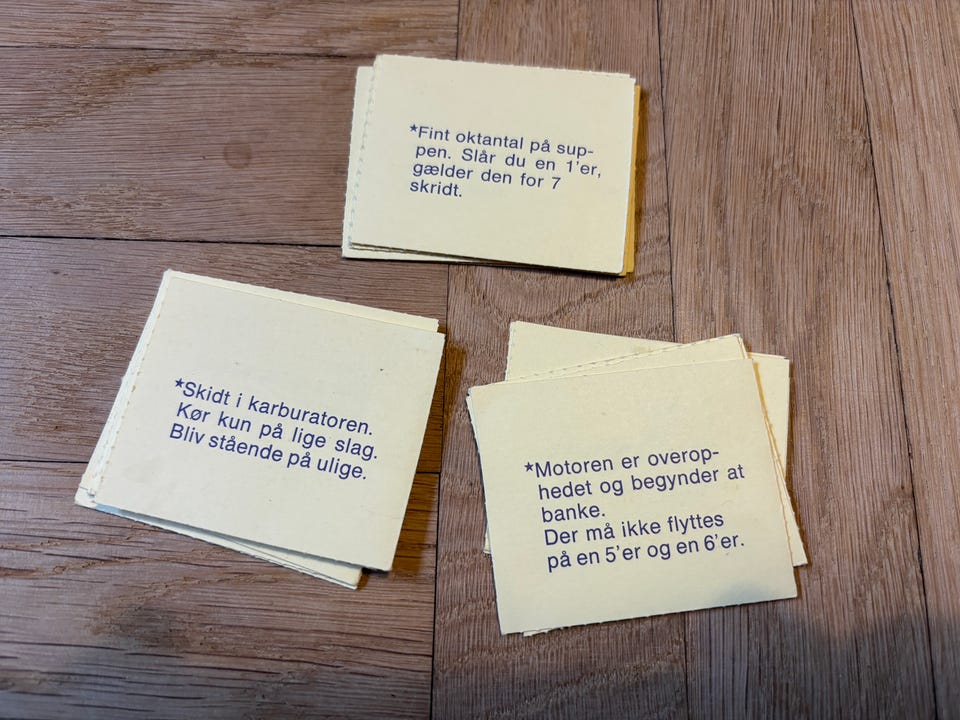 *Fint oktantal på sup-
pen. Slår du en 1'er,
gælder den for 7
skridt.
*Skidt i karburatoren.
Kør kun på lige slag.
Bliv stående på ulige.
*Motoren er overop-
hedet og begynder at
banke.
Der må ikke flyttes
på en 5'er og en 6'er.